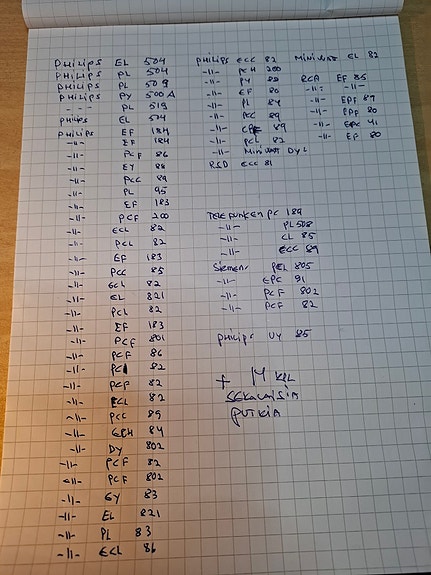 PHILIPS EL 504
PHILIPS PL 504
PHILIPS PL 509
PHILIPS PY 500 A
- - - - PL 519
PHILIPS EL 504
PHILIPS EF 184
-11- EF 184
-11- PCF 86
-11- EY 88
-11- PCC 89
-11- PL 95
-11- EF 183
-11- PCF 200
-11- ECL 82
-11- PCL 82
-11- EF 183
-11- PCC 85
-11- ECL 82
-11- EL 821
-11- PCL 82
-11- EF 183
-11- PCF 801
-11- PCF 86
-11- PCL 82
-11- PCF 82
-11- ECL 82
-11- PCC 89
-11- ECH 84
-11- DY 802
-11- PCF 82
-11- PCF 802
-11- GY 83
-11- EL 821
-11- PL 83
-11- ECL 86
PHILIPS ECC 82
-11- PCH 200
-11- PY 88
-11- EF 80
-11- PL 84
-11- PCC 89
-11- 89
-11- PCL 82
-11- MINIWATT DY
RSD ECC 81
MINIWATT EL 82
RCA EF 85
-11- -11-
-11- EBF 89
-11- EBF 80
-11- 41
-11- EF 80
TELEFUNKEN PC 189
-11- PL 508
-11- CL 85
-11- ECC 89
Siemens PCL 805
-11- 91
-11- PCF 802
-11- PCF 82
PHILIPS UY 85
+ 14 KPL
SEKALAISIA
PUTKIA